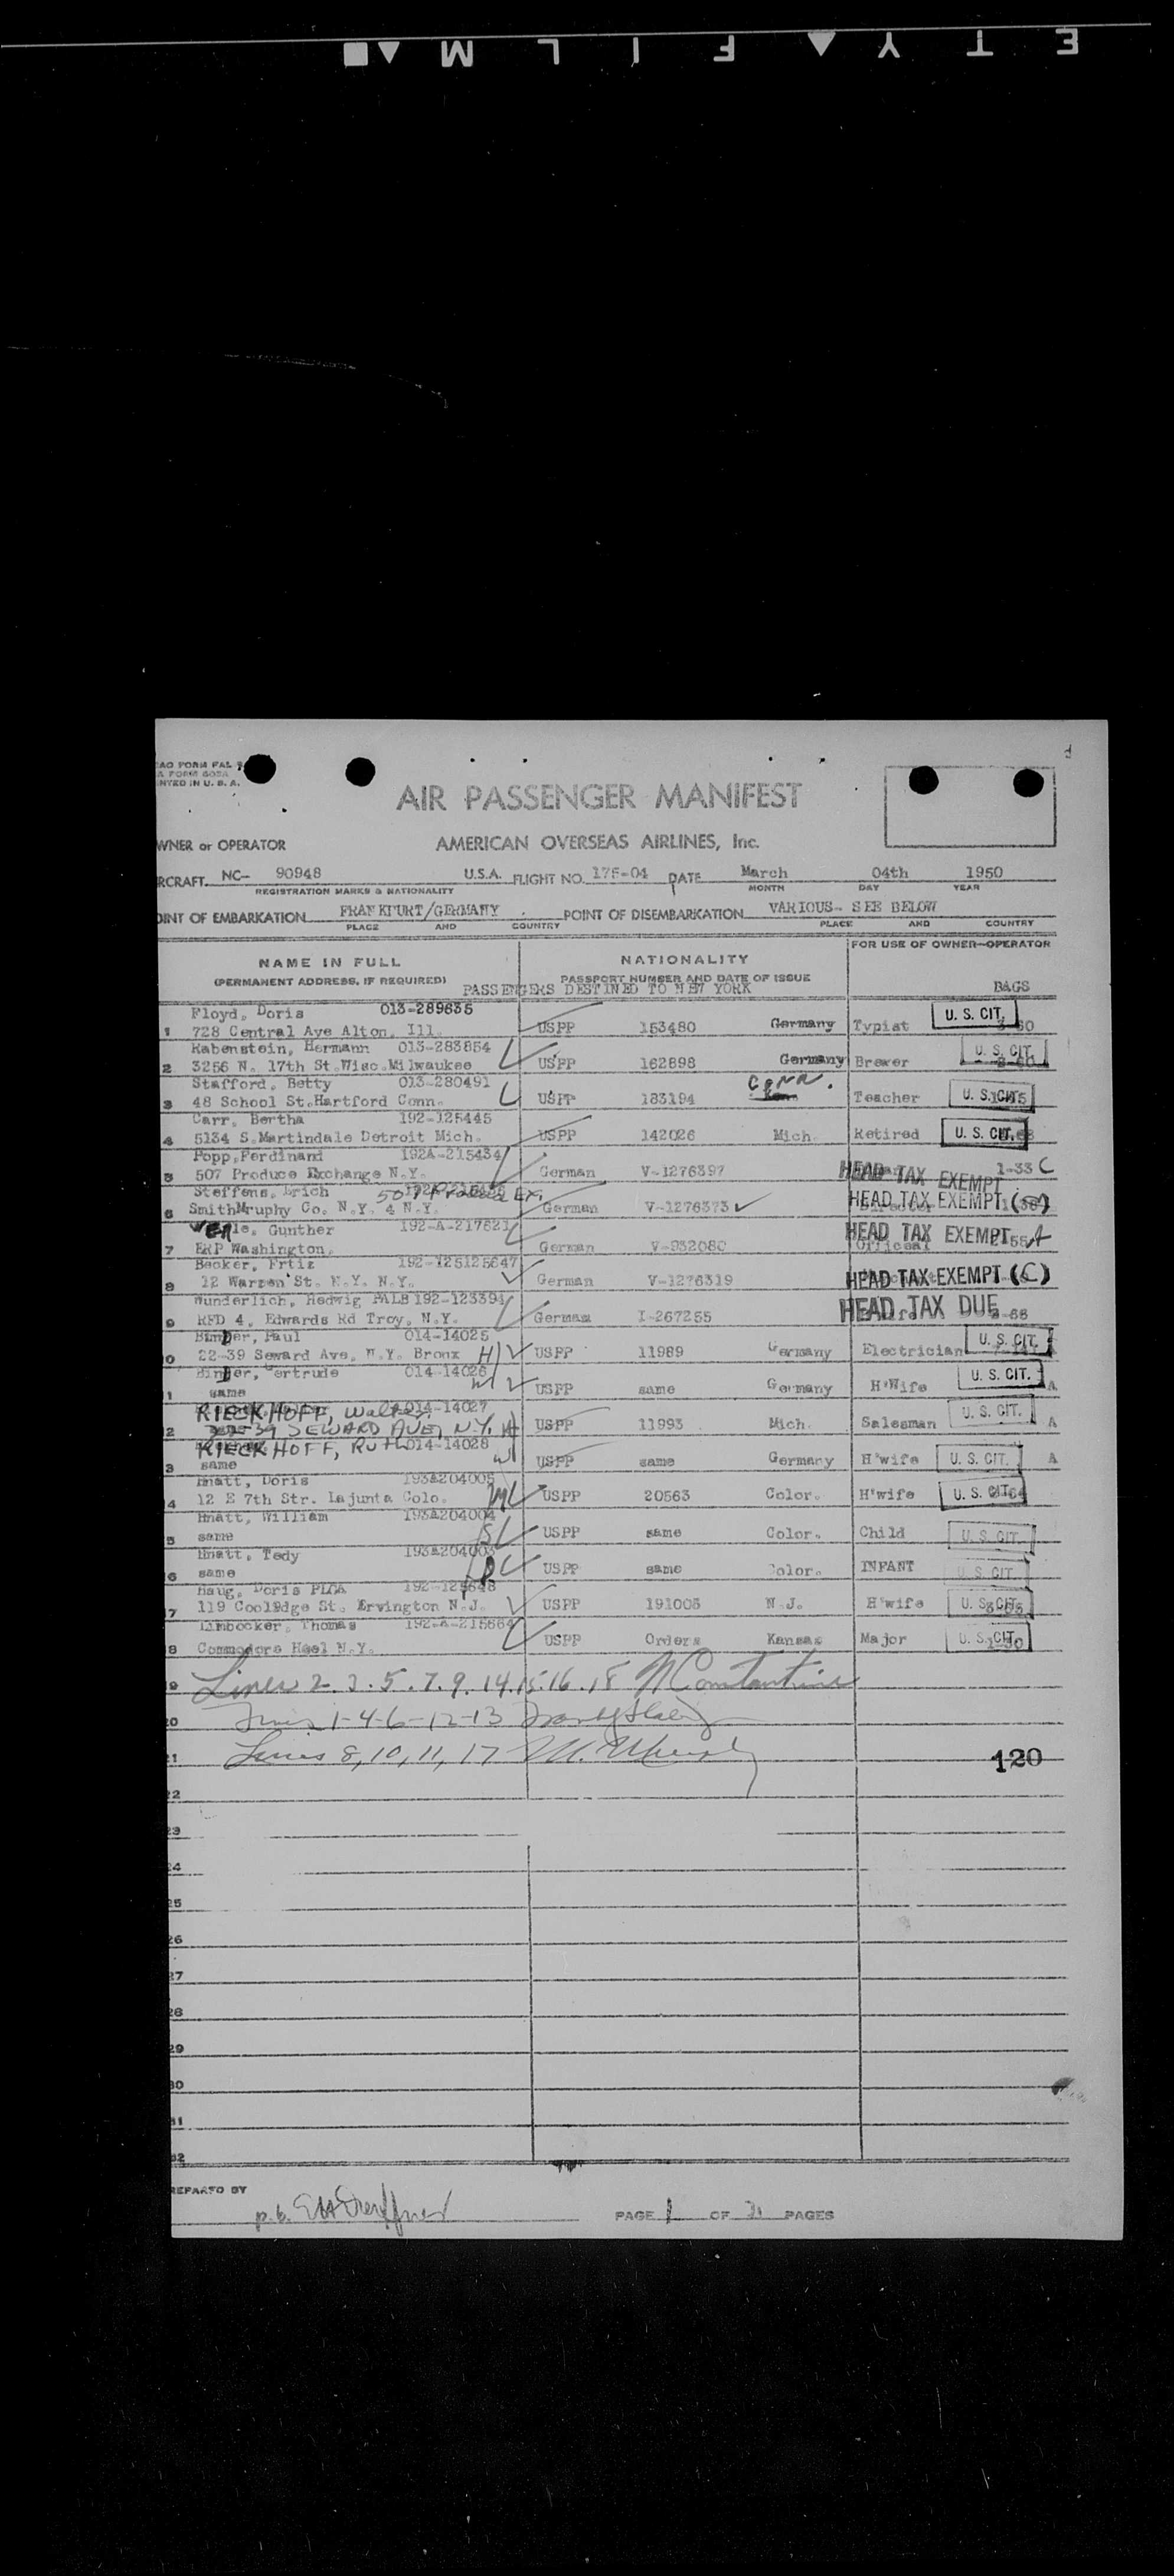 E T Y ▲ F I L M ▲ ■
AO FORM PAL
A FORM
NTED IN U. S. A.
AIR PASSENGER MANIFEST
WNER or OPERATOR AMERICAN OVERSEAS AIRLINES, Inc.
RCRAFT NC- 90948 U.S.A. FLIGHT NO. 175-04 DATE March 04th 1950
REGISTRATION MARKS & NATIONALITY MONTH DAY YEAR
OINT OF EMBARKATION FRANKFURT/GERMANY POINT OF DISEMBARKATION VARIOUS- SEE BELOW
PLACE AND COUNTRY PLACE AND COUNTRY
NAME IN FULL NATIONALITY FOR USE OF OWNER—OPERATOR
(PERMANENT ADDRESS, IF REQUIRED) PASSPORT NUMBER AND DATE OF ISSUE
PASSENGERS DESTINED TO NEW YORK BAGS
Floyd, Doris 013-289635 U. S. CIT.
1 728 Central Ave Alton, Ill. USPP 153480 Germany Typist
Rabenstein, Hermann 013-283854 U. S. CIT.
2 3256 N. 17th St.Wisc.Milwaukee USPP 162898 Germany Brewer
Stafford, Betty 013-280491 CONN.
3 48 School St.Hartford Conn. USPP 183194 Teacher U. S. CIT.
Carr, Bertha 192-125445
4 5134 S.Martindale Detroit Mich. USPP 142026 Mich. Retired U. S. CIT.
Popp,Ferdinand 192A-215434
5 507 Produce Exchange N.Y. German V-1276397 HEAD TAX EXEMPT 1-33 C
Steffens, Erich 507 Produce Ex.
6 SmithMruphy Co. N.Y. 4 N.Y. German V-1276373 HEAD TAX EXEMPT
Gunther 192-A-217621
7 ERP Washington. German V-932080 HEAD TAX EXEMPT Official
Becker, Frtiz 192-125125647
8 12 Warren St. N.Y. N.Y. German V-1276319 HEAD TAX EXEMPT (C)
Wunderlich, Hedwig PALB 192-123394
9 RFD 4, Edwards Rd Troy, N.Y. German I-267255 HEAD TAX DUE
Binder, Paul 014-14025
0 22-39 Seward Ave, N.Y. Bronx H USPP 11989 Germany Electrician U. S. CIT.
Binder, Gertrude 014-14026
1 same W USPP same Germany H'Wife U. S. CIT. A
RIECKHOFF, Walter 014-14027
2 SEWARD AVE, N.Y. H USPP 11993 Mich. Salesman U. S. CIT. A
RIECKHOFF, RUTH 014-14028
3 same W USPP same Germany H'wife U. S. CIT. A
Hnatt, Doris 193A204005
4 12 E 7th Str. Lajunta Colo. M USPP 20563 Color. H'wife U. S. CIT.
Hnatt, William 193A204004
5 same S USPP same Color. Child U. S. CIT.
Hnatt, Tedy 193A204003
6 same USPP same Color. INFANT U. S. CIT.
Haug, Doris
7 119 Cooledge St. Ervington N.J. USPP 191005 N.J. H'wife U. S. CIT.
Limbocker, Thomas 192-A-215664
8 Commodore Hoel N.Y. USPP Orders Kansas Major U. S. CIT.
9 Lines 2.3.5.7.9.14.15.16.18 N Constantine
20 Lines 1-4-6-12-13
21 Lines 8,10,11,17 120
22
23
24
25
26
27
28
29
30
31
32
REPARED BY
PAGE 1 OF PAGES